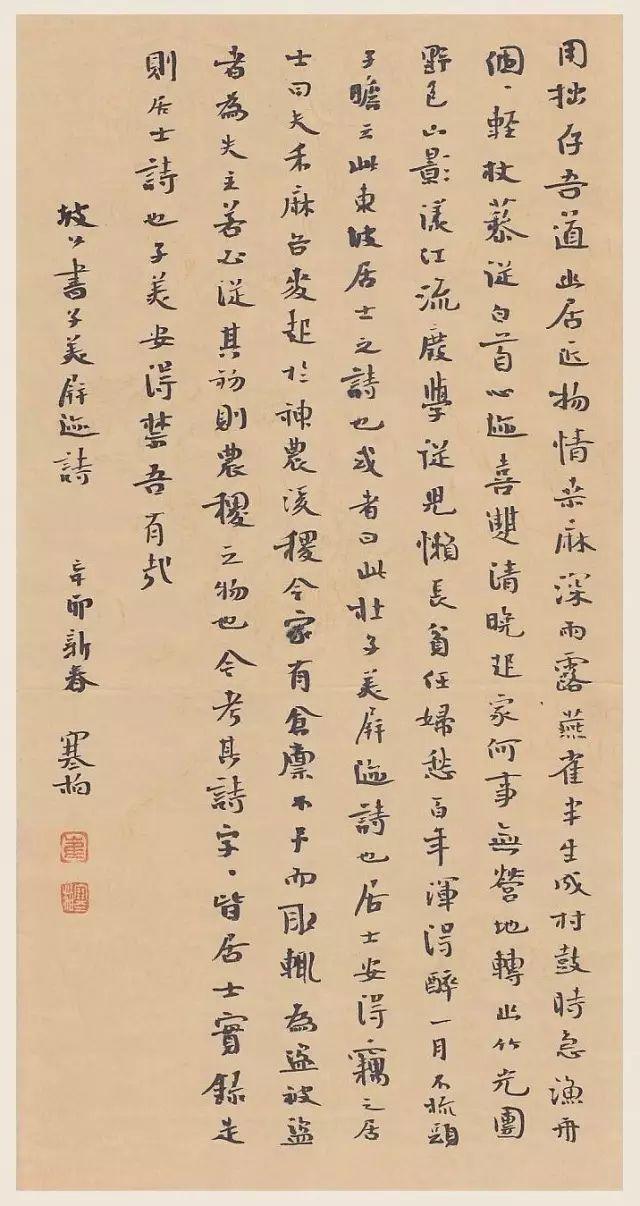 用拙存吾道幽居近物情桑麻深雨露燕雀半生成村鼓時急漁舟
個、輕杖藜從白首心迹喜雙清晚起家何事無營地轉幽竹光團
野色山影漾江流廢學從兒懶長貧任婦愁百年渾得醉一月不梳頭
子瞻云此東坡居士之詩也或者曰此杜子美屏迹詩也居士安得竊之居
士曰夫禾麻谷麥起於神農後稷今家有倉廩不予而取輒為盜被盜
者為失主若必從其初則農稷之物也今考其詩字、皆居士實錄是
則居士詩也子美安得禁吾有哉
坡公書子美屏迹詩 辛卯新春 寒柏